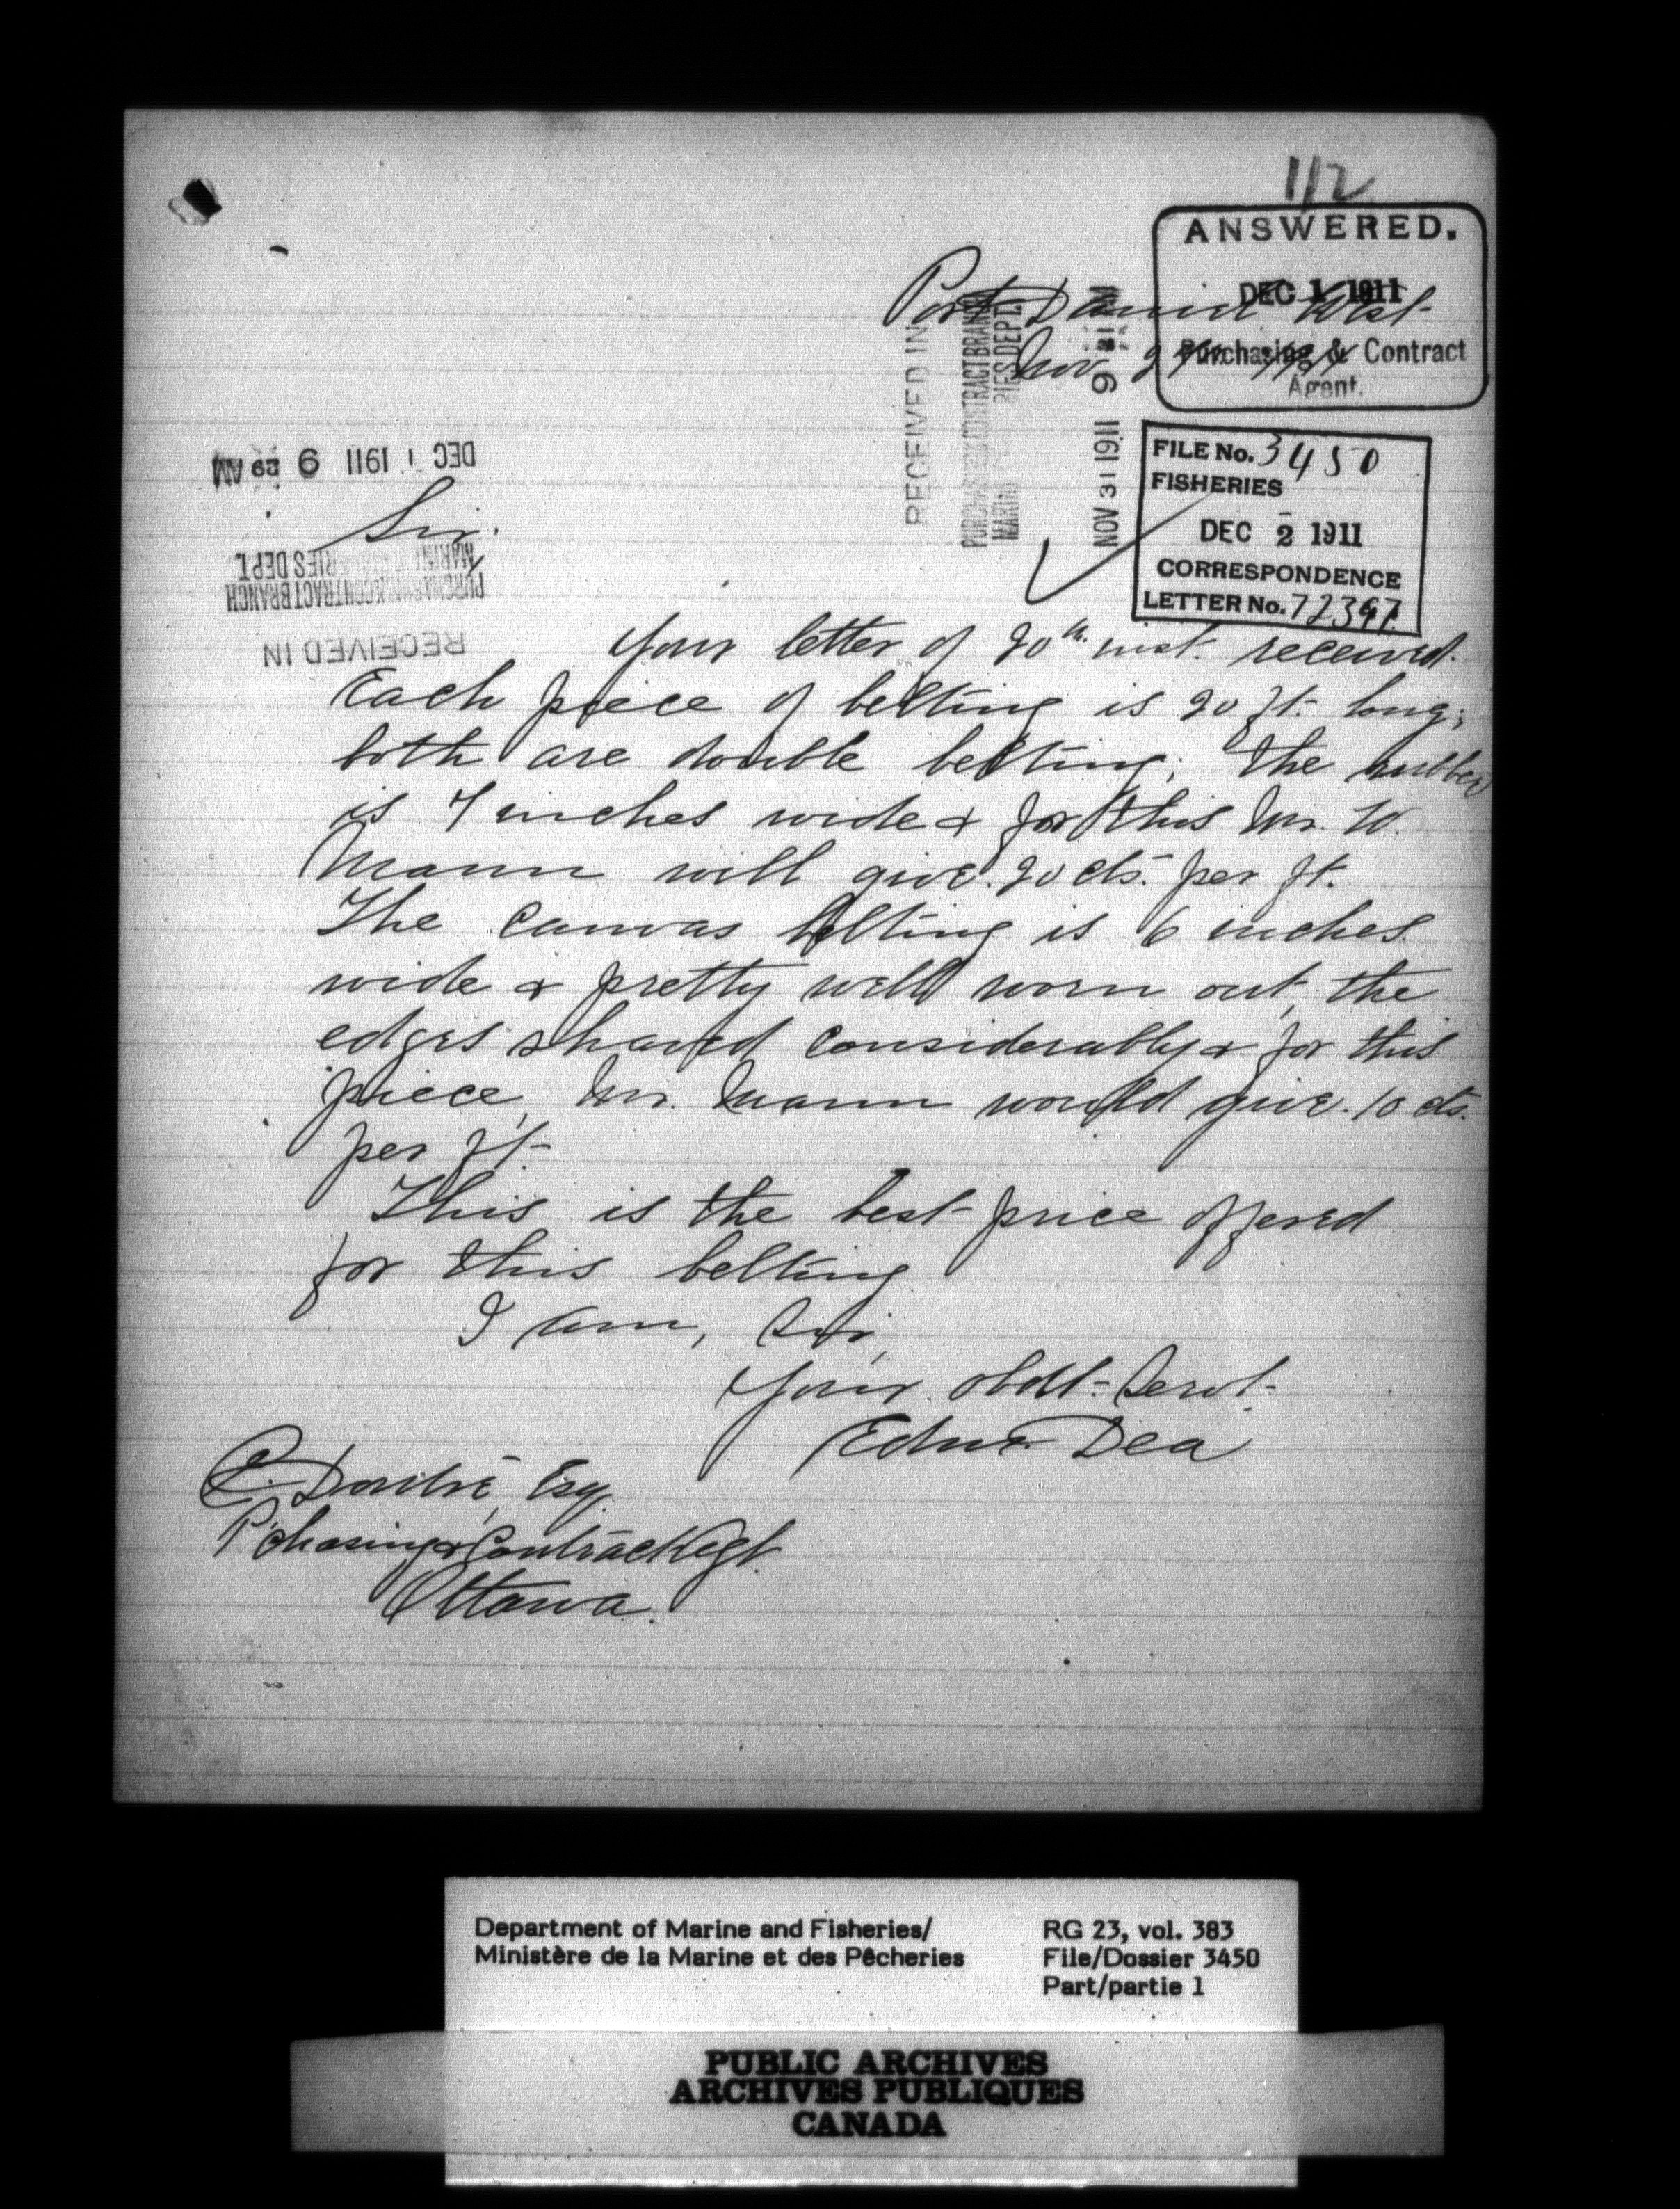 112
ANSWERED.
DEC 1 1911
Purchasing & Contract
Agent.
Port Daniel West
Nov. 1911
RECEIVED IN
PURCHASING & CONTRACT BRANCH
MARINE RIES DEPT.
NOV 31 1911 9 AM
FILE No. 3450
FISHERIES
DEC 2 1911
CORRESPONDENCE
LETTER No.
DEC 1 1911 9 AM
MARINE RIES DEPT.
PURCHASING & CONTRACT BRANCH
RECEIVED IN
Sir,
Your letter of 20th inst. received.
Each piece of belting is 20 ft. long;
both are double belting; the rubber
is 7 inches wide & for this Mr. W.
Mann will give 20 cts. per ft.
The canvas belting is 6 inches
wide & pretty well worn out, the
edges considerably & for this
piece, Mr. Mann would give 10 cts.
per ft.
This is the best price offered
for this belting
I am, Sir,
Your obdt. Servt.
Edm. Dea
Esq.
P'chasing & Contract Agt.
Ottawa.
Department of Marine and Fisheries/
Ministère de la Marine et des Pêcheries
RG 23, vol. 383
File/Dossier 3450
Part/partie 1
PUBLIC ARCHIVES
ARCHIVES PUBLIQUES
CANADA